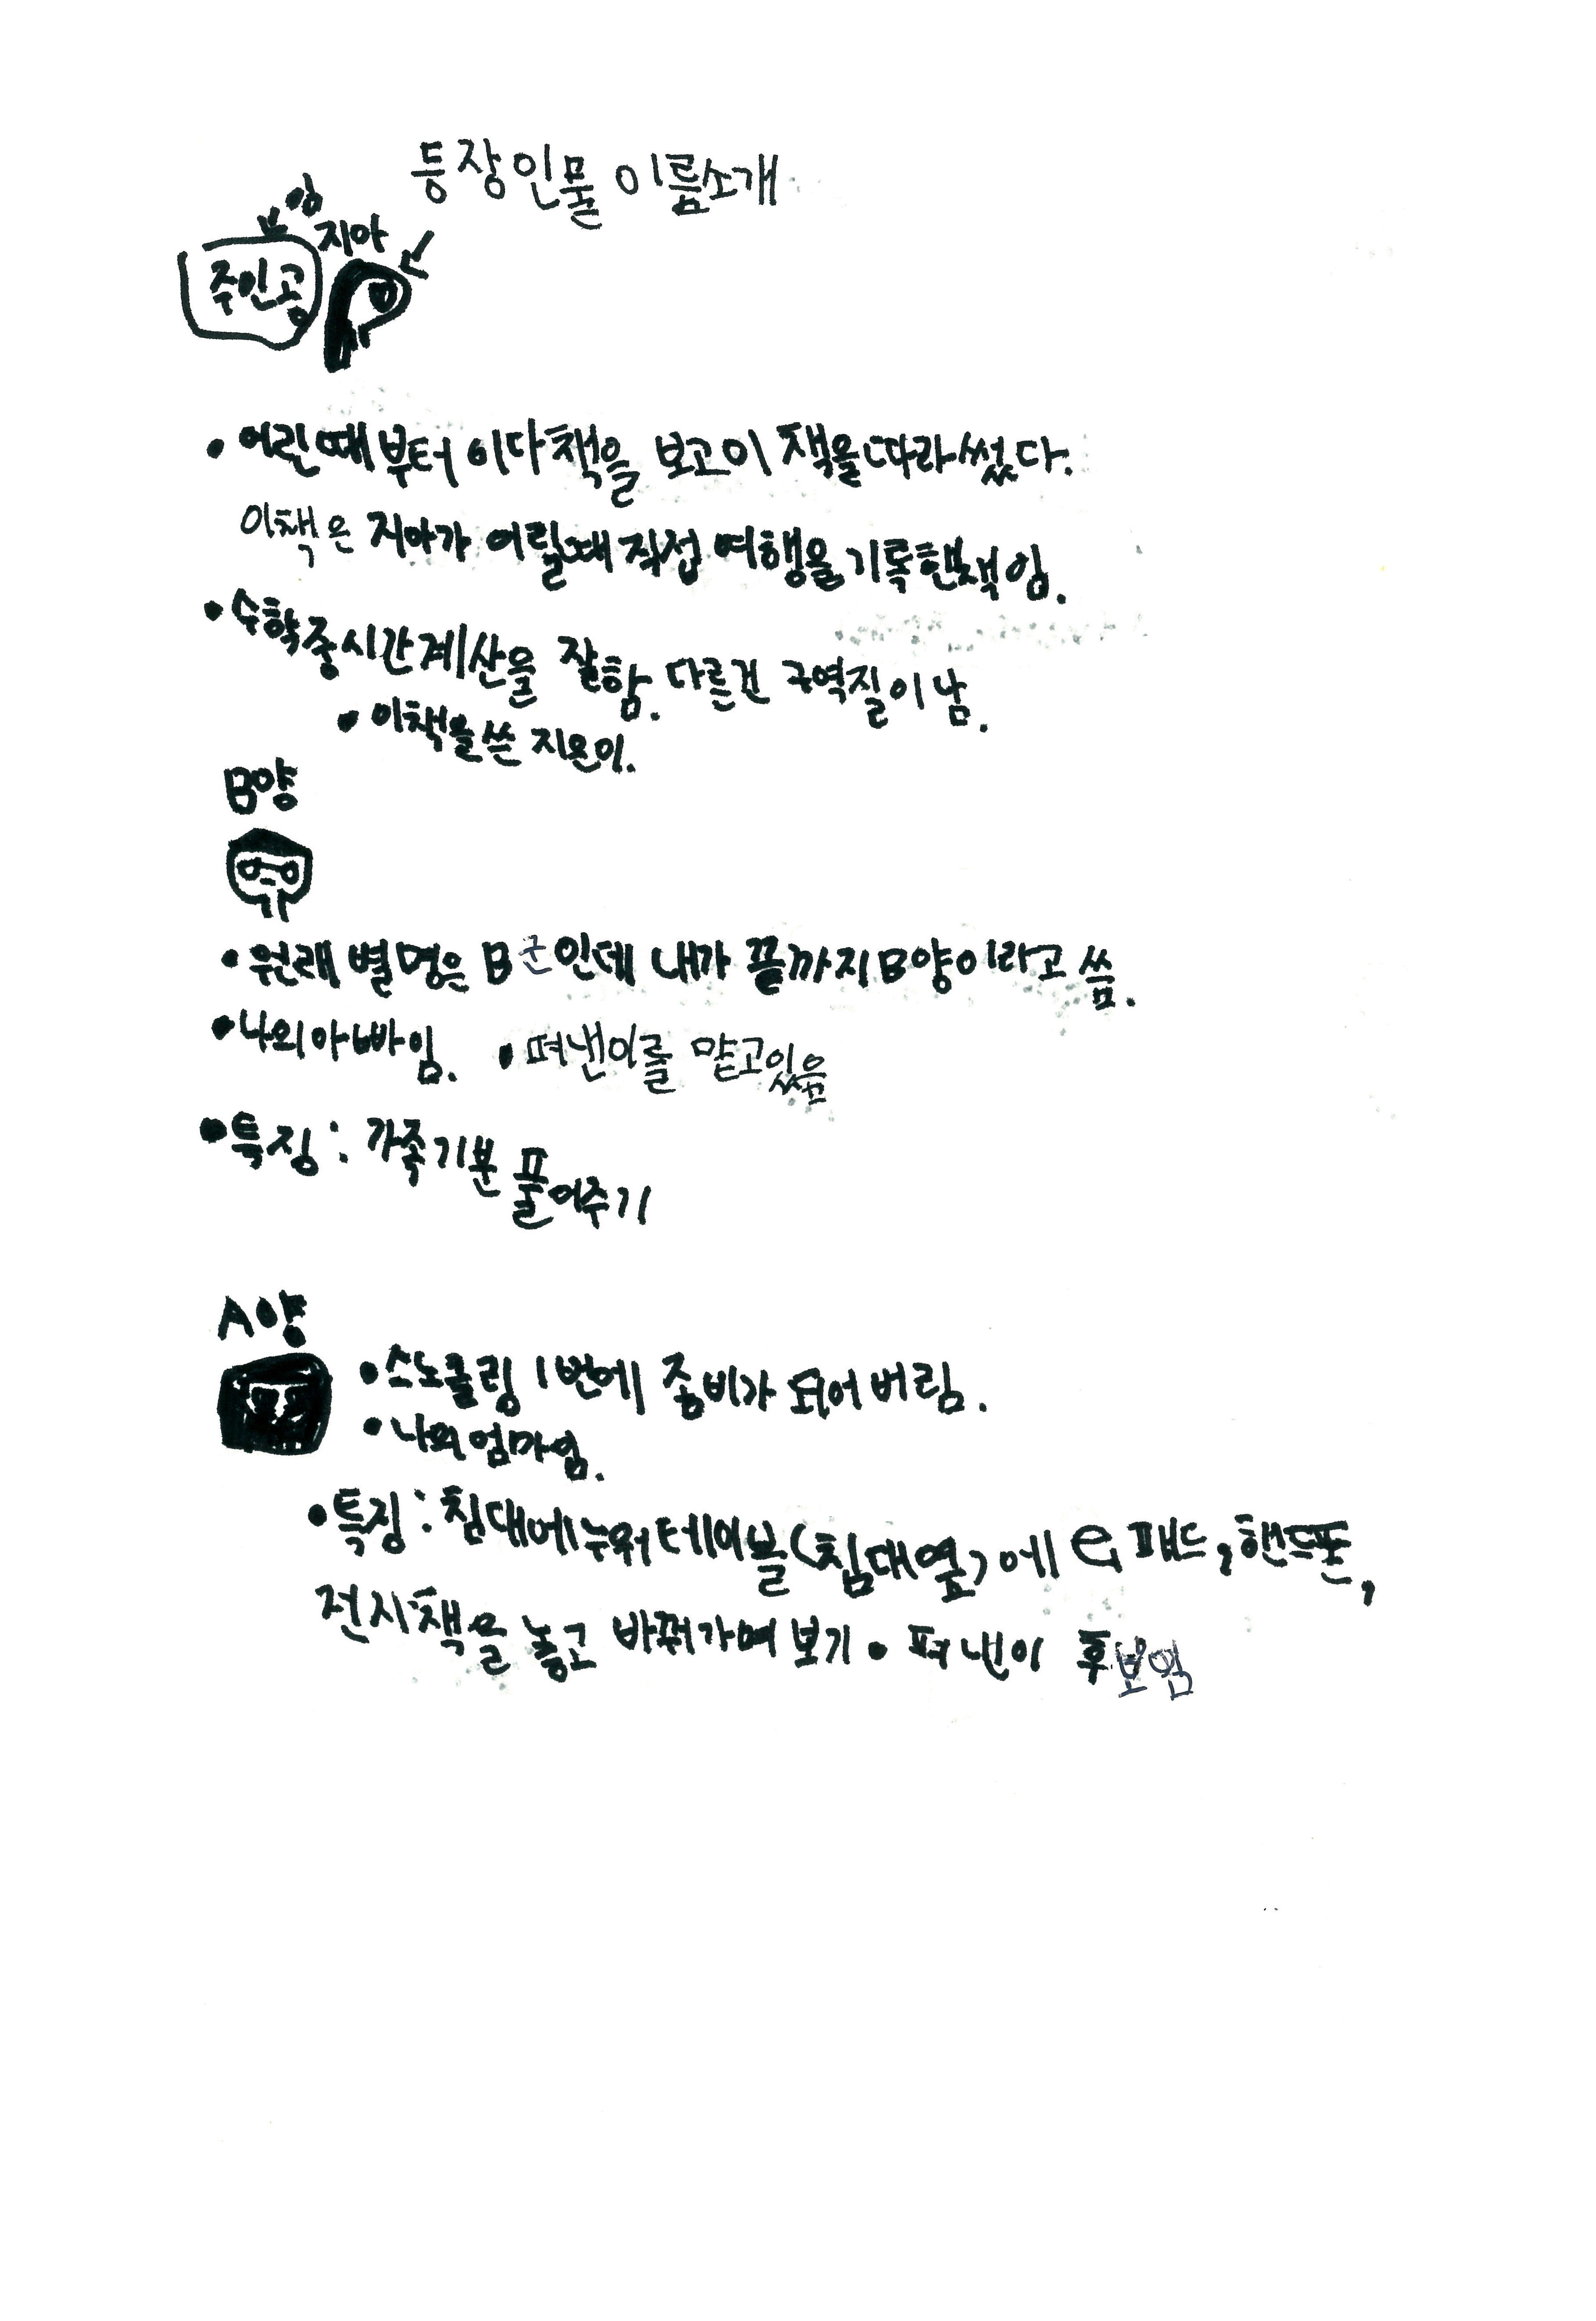 등장인물 이름소개
임
지아
주인공
• 어린때부터 이다책을 보고이 책을따라썼다.
이책은 지아가 어릴때 직접 여행을 기록한책임.
• 수학중시간계산을 잘함. 다른건 구역질이남.
• 이책을쓴 지은이.
B양
• 원래 별명은 B군인데 내가 끝까지B양이라고 씀.
• 나의아빠임. • 펴낸이를 맡고있음
• 특징: 가족기분 풀어주기
A양
• 스노쿨링 1번에 좀비가 되어버림.
• 나의엄마임.
• 특징: 침대에누워테이블(침대옆)에 패드, 핸드폰,
전자책을 놓고 바꿔가며 보기 • 펴낸이 후보임